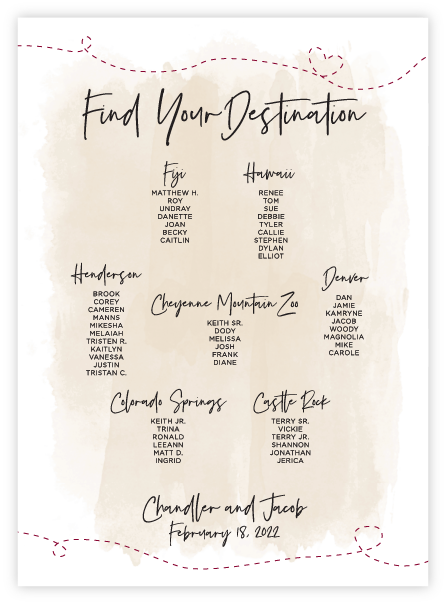 Find Your Destination
Fiji
MATTHEW H.
ROY
UNDRAY
DANETTE
JOAN
BECKY
CAITLIN
Hawaii
RENEE
TOM
SUE
DEBBIE
TYLER
CALLIE
STEPHEN
DYLAN
ELLIOT
Henderson
BROOK
COREY
CAMEREN
MANNS
MIKESHA
MELAIAH
TRISTEN R.
KAITLYN
VANESSA
JUSTIN
TRISTAN C.
Cheyenne Mountain Zoo
KEITH SR.
DODY
MELISSA
JOSH
FRANK
DIANE
Denver
DAN
JAMIE
KAMRYNE
JACOB
WOODY
MAGNOLIA
MIKE
CAROLE
Colorado Springs
KEITH JR.
TRINA
RONALD
LEEANN
MATT D.
INGRID
Castle Rock
TERRY SR.
VICKIE
TERRY JR.
SHANNON
JONATHAN
JERICA
Chandler and Jacob
February 18, 2022